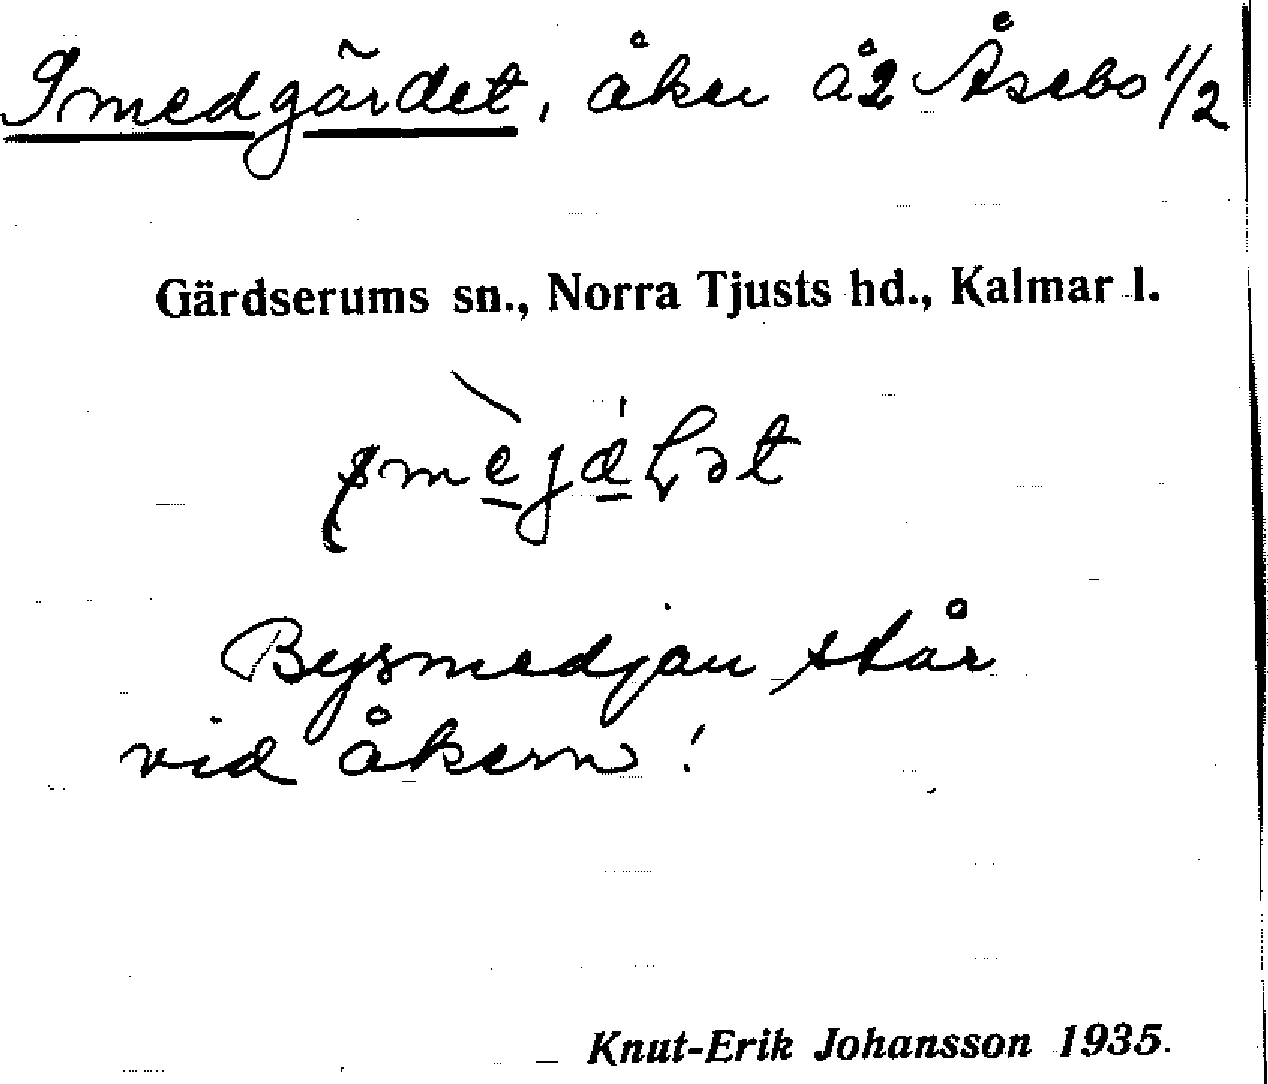 Smedgärdet, åker å 2 Åsebo 1/2
Gärdserums sn., Norra Tjusts hd., Kalmar l.
Bysmedjan står
vid åkern!
Knut-Erik Johansson 1935.